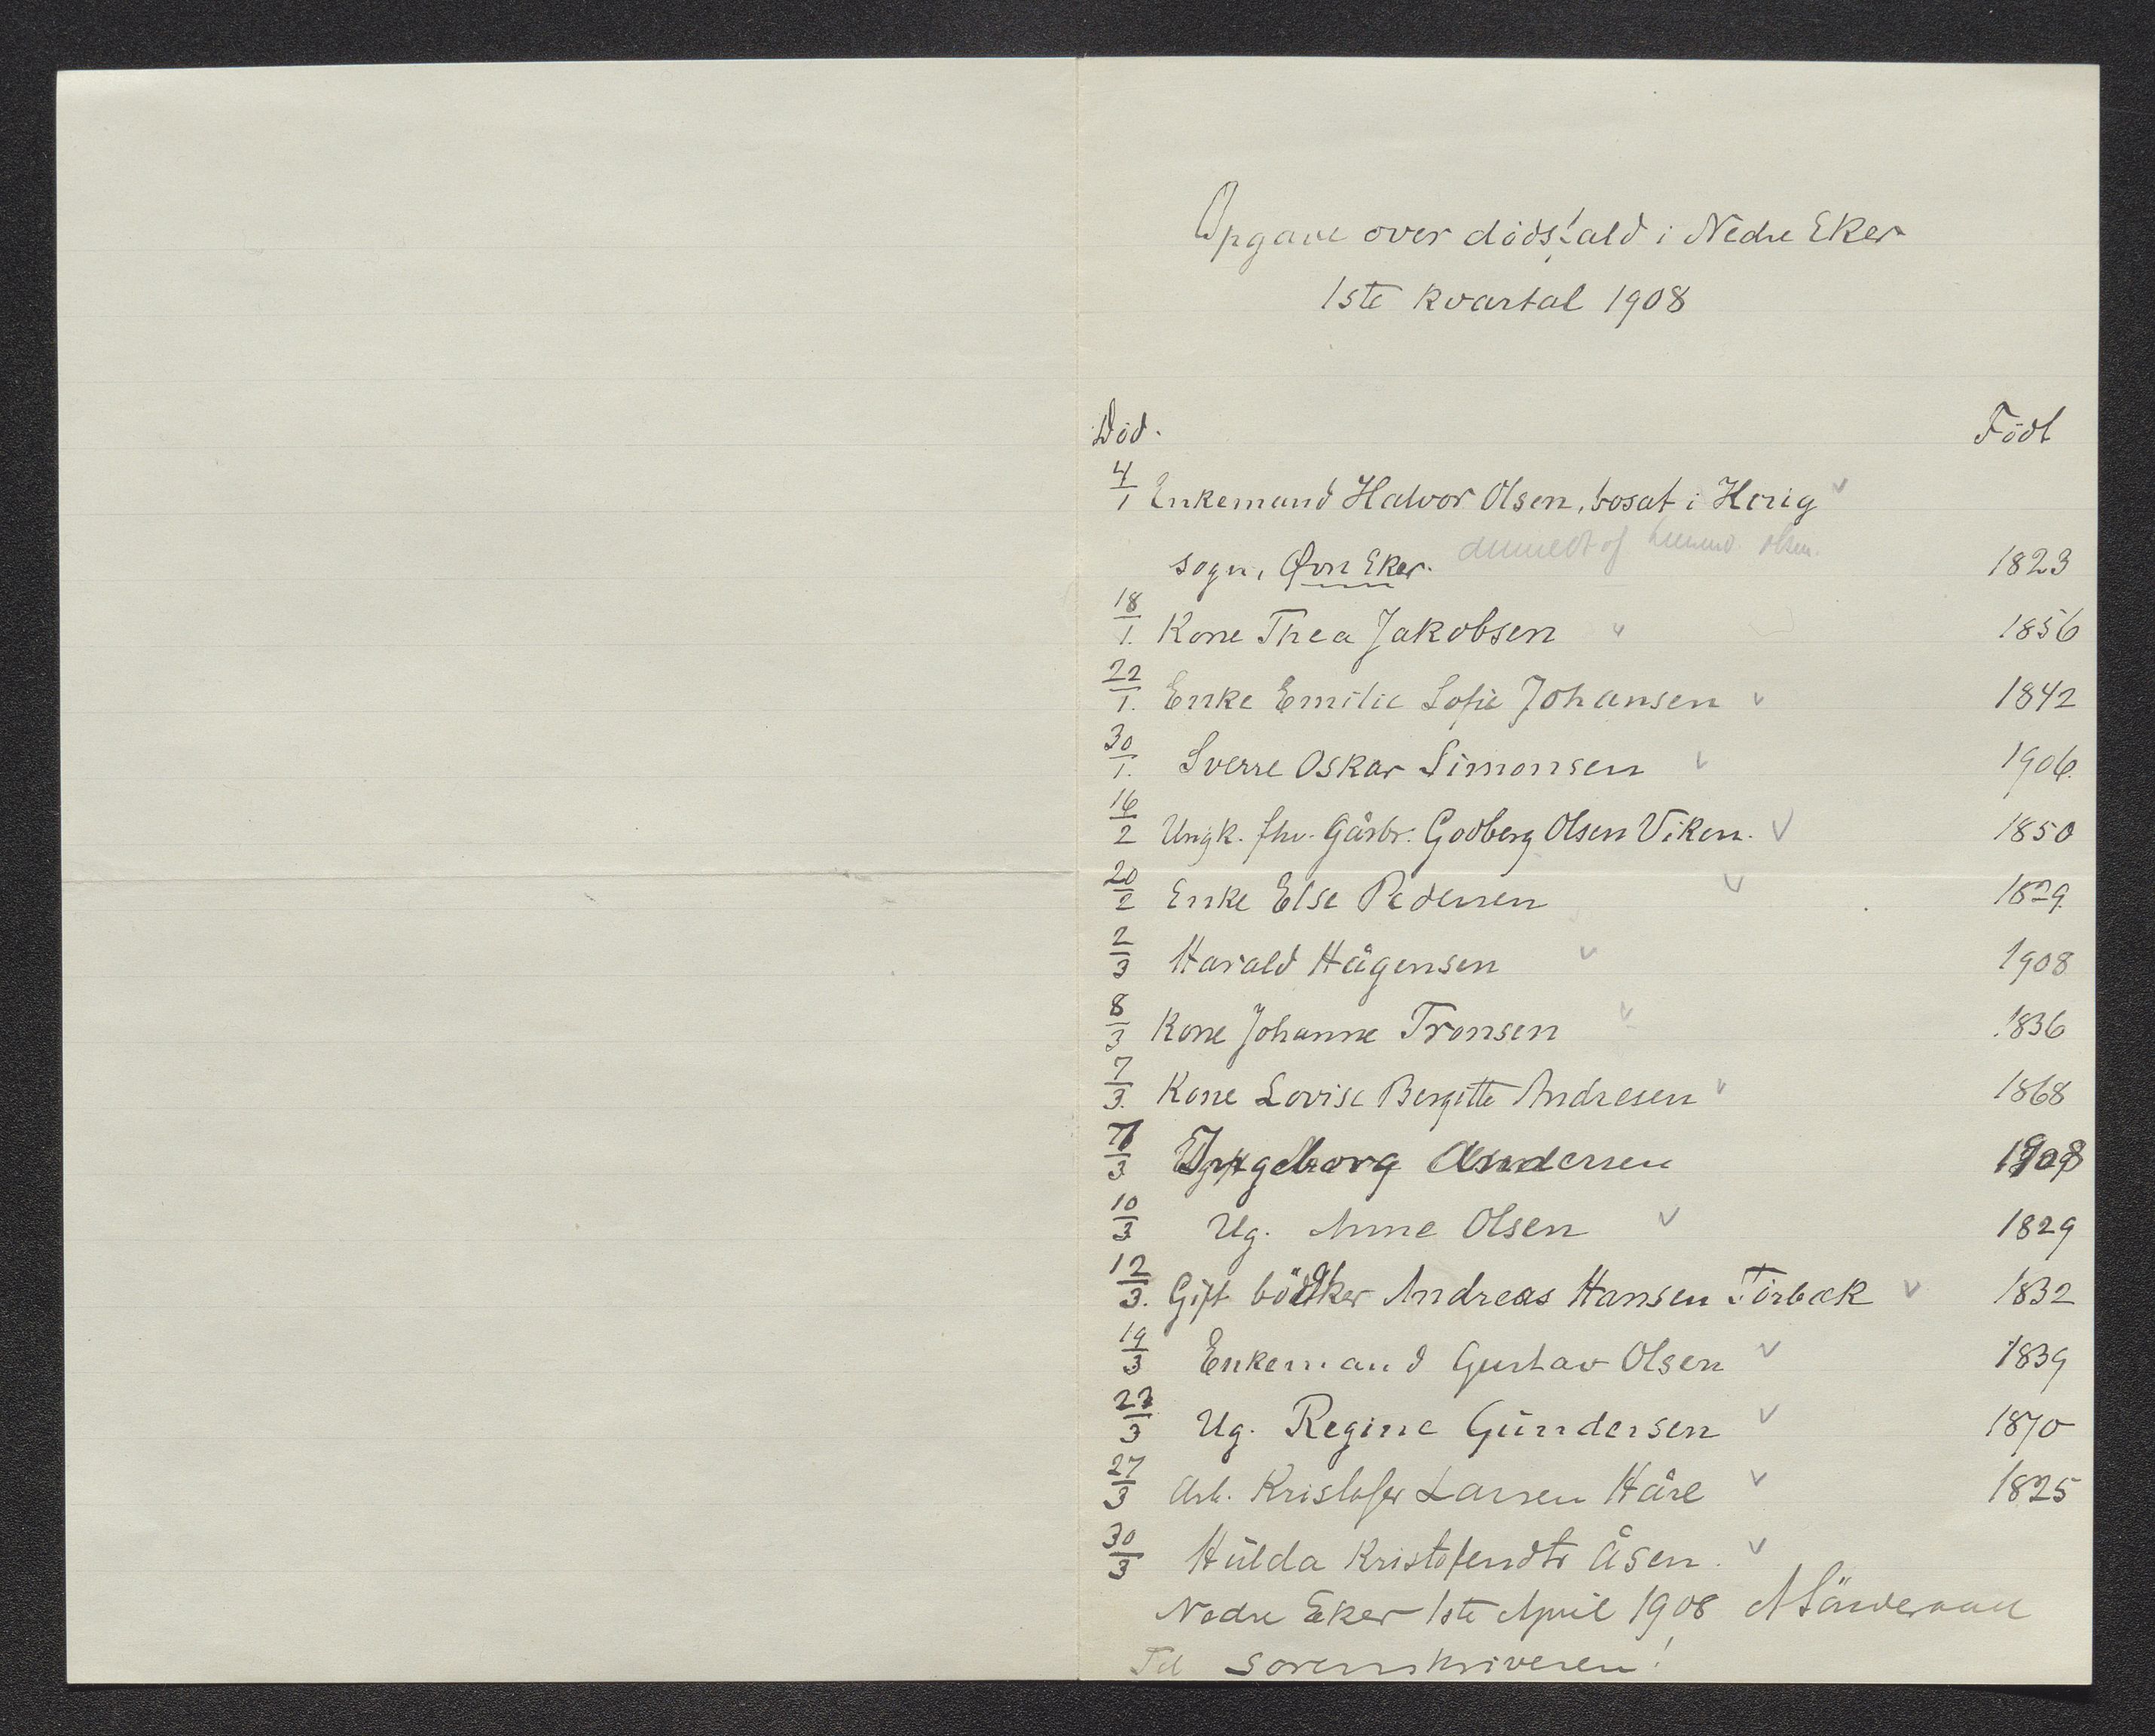 Opgave over dødsfald i Nedre Eker
1ste kvartal 1908
Død. Født
4/1 Enkemand Halvor Olsen, bosat i Haug
sogn, Øvre Eker. anmeldt af Olsen. 1823
18/1. Kone Thea Jakobsen 1856
22/1. Enke Emilie Sofie Johansen 1842
30/1. Sverre Oskar Simonsen 1906.
16/2 Ungk. fhv. Gårbr. Godberg Olsen Viken. 1850
20/2 Enke Else Pedersen 1829
2/3 Harald Hågensen 1908
8/3 Kone Johanne Tronsen 1836
7/3. Kone Lovise Bergitte Andresen 1868
7/3 Ingeborg Andersen 1908
10/3 Ug. Anne Olsen 1829
12/3. Gift bödker Andreas Hansen Torbek 1832
19/3 Enkemand Gustav Olsen 1839
23/3 Ug. Regine Gundersen 1870
27/3 Arb. Kristofer Larsen Håre 1825
30/3 Hulda Kristofersdtr Åsen.
Nedre Eker 1ste April 1908
Til Sorenskriveren!